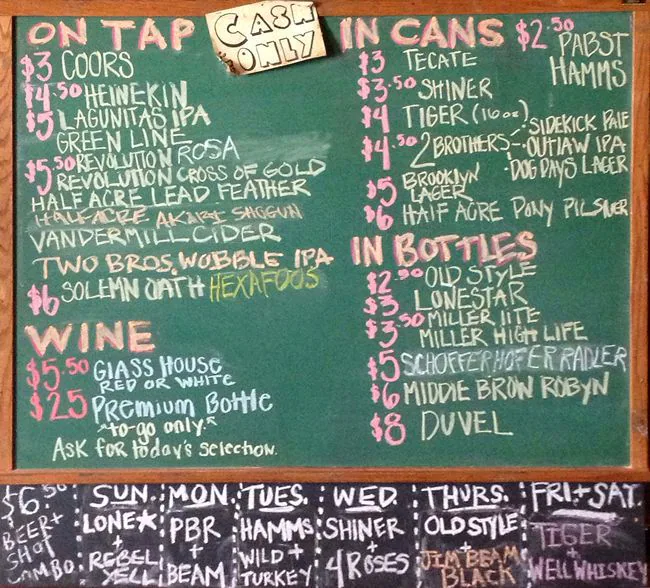 CASH
ONLY
ON TAP
$3 COORS
$4.50 HEINEKIN
$5 LAGUNITAS IPA
GREEN LINE
$5.50 REVOLUTION ROSA
REVOLUTION CROSS OF GOLD
HALF ACRE LEAD FEATHER
HALF ACRE AKARI SHOGUN
VANDERMILL CIDER
TWO BROS. WOBBLE IPA
$6 SOLEMN OATH HEXAFOOS
WINE
$5.50 GLASS HOUSE
RED OR WHITE
$25 PREMIUM BOTTLE
*to-go only.*
ASK for today's selection.
IN CANS
$2.50 PABST
HAMMS
$3 TECATE
$3.50 SHINER
$4 TIGER (16oz)
$4.50 2 BROTHERS
·SIDEKICK PALE
·OUTLAW IPA
·DOG DAYS LAGER
$5 BROOKLYN
LAGER
$6 HALF ACRE PONY PILSNER
IN BOTTLES
$2.50 OLD STYLE
$3 LONESTAR
$3.50 MILLER LITE
MILLER HIGH LIFE
$5 SCHOFFERHOFER RADLER
$6 MIDDLE BROW ROBYN
$8 DUVEL
$6.50
BEER+
SHOT
COMBO
SUN.
LONE★
+
REBEL
YELL
MON.
PBR
+
BEAM
TUES.
HAMMS
+
WILD
TURKEY
WED.
SHINER
+
4 ROSES
THURS.
OLD STYLE
+
JIM BEAM
BLACK
FRI.+SAT.
TIGER
+
WELL WHISKEY